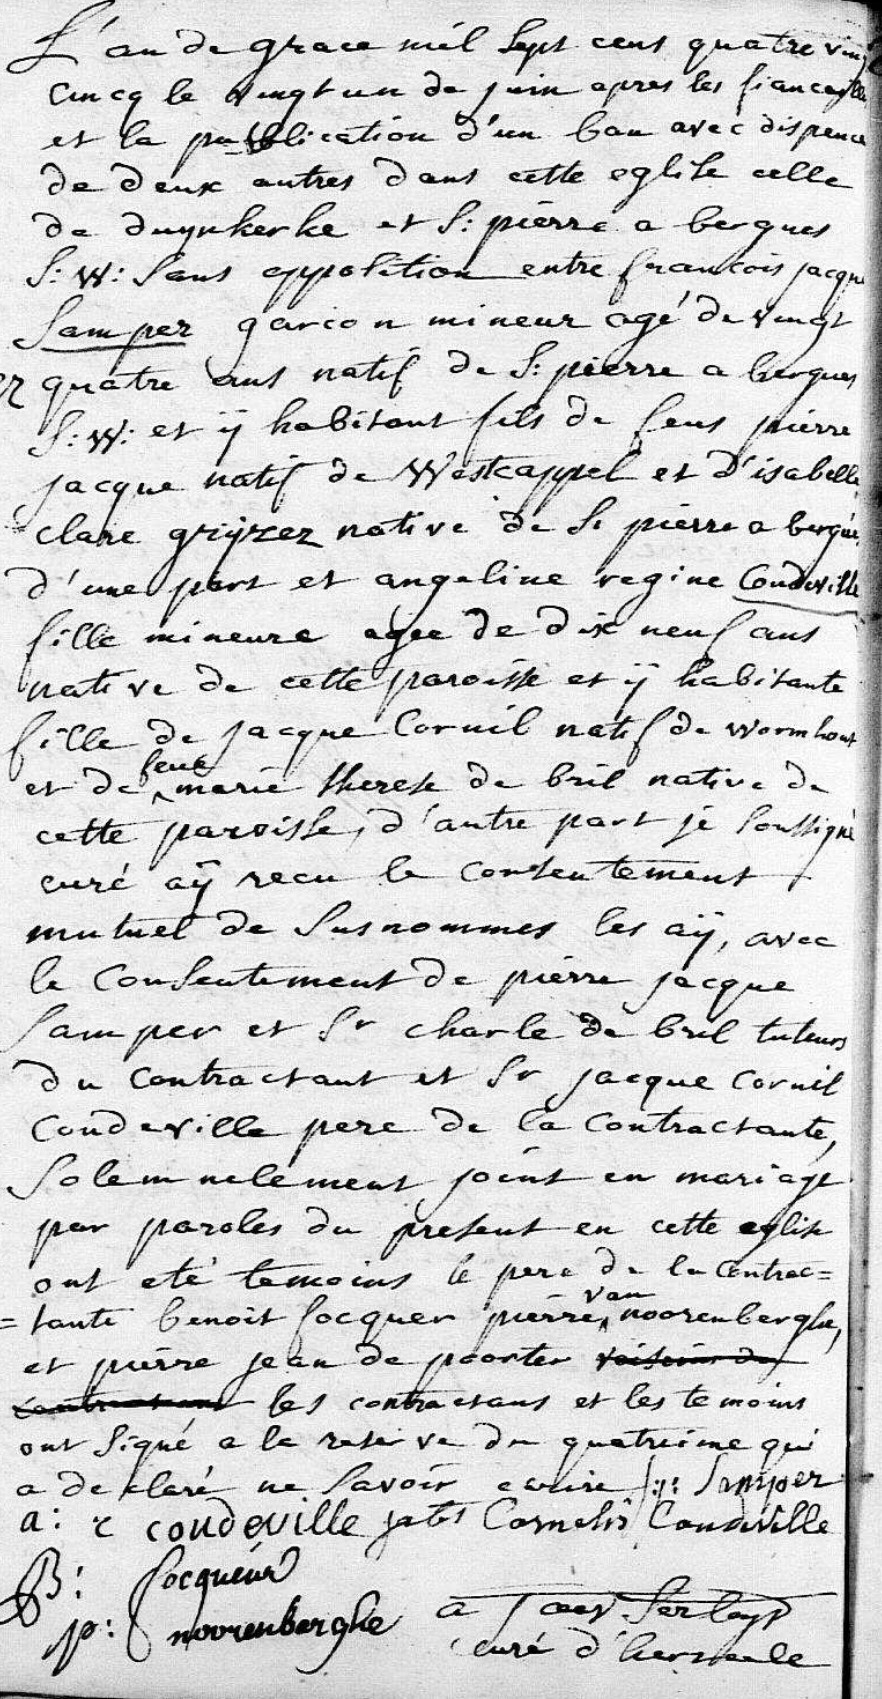 L'an de grace mil sept cens quatre vingt
cincq le vingt un de juin apres les fiancaille
et la publication d'un ban avec dispence
de deux autres dans cette eglise celle
de duynkerke et S: pierre a bergues
S: W: sans opposition entre francois jacque
Samper garcon mineur agé de vingt
quatre ans natif de S: pierre a bergues
S: W: et ÿ habitant fils de feus pierre
jacque natif de Westcappel et d'isabelle
clare grÿzez native de St pierre a bergues
d'une part et angeline regine Condeville
fille mineure agee de dix neuf ans
native de cette paroisse et ÿ habitante
fille de jacque Cornil natif de wormhout
et de feue marie therese de bril native de
cette paroisse, d'autre part je soussigné
curé aÿ recu le consentement
mutuel de susnommes les aÿ, avec
le Consentement de pierre jacque
Samper et Sr charle de bril tuteurs
du contractant et Sr jacque cornil
Condeville pere de la Contractante,
Solemnelement joint en mariage
par paroles du present en cette eglise
ont eté temoins le pere de la contrac=
=tante benoit focquer pierre van noorenberghe,
et pierre jean de poorter voisins du
contractant les contractans et les temoins
ont signé a la reserve du quatrieme qui
a declaré ne savoir ecrire Samper
a: r condeville Cornelis Condeville
B: focqueur
p: noorenberghe a
curé d'herseele